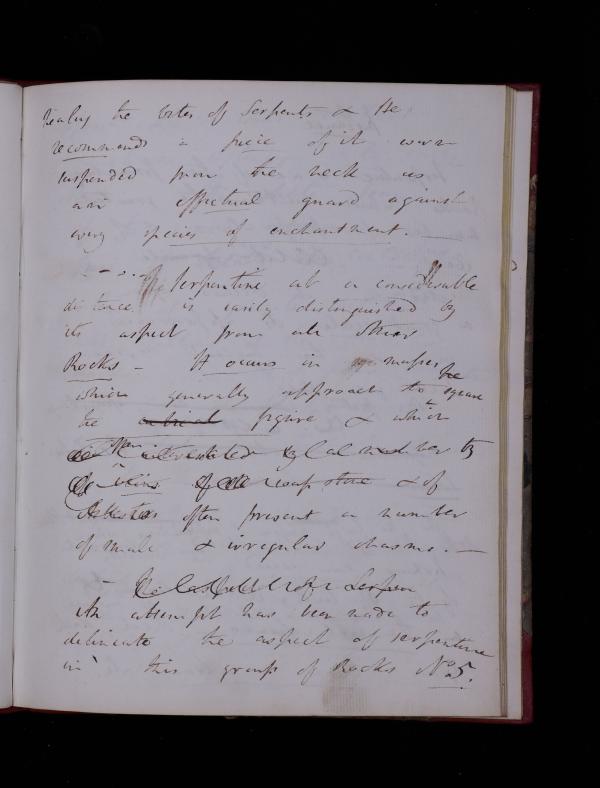 healing the bites of Serpents & He
recommends a piece of it worn
suspended from the neck as
an effectual guard against
every species of enchantment. —
Serpentine at a considerable
distance is easily distinguished by
its aspect from all other
Rocks — It occurs in masses
which generally approach to
the square
the cubical figure & which
by
veins of soap stone & of
Asbestos often present a number
of small & irregular chasms. —
An attempt has been made to
delineate the aspect of serpentine
in this group of Rocks No 5.